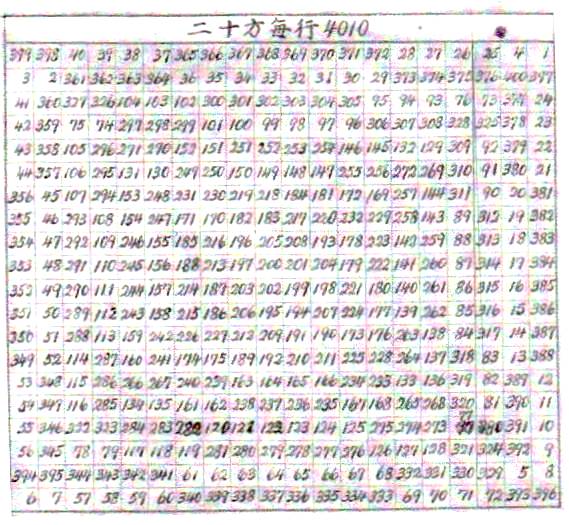 二十方每行4010
399 398 40 39 38 37 365 366 367 368 369 370 371 372 28 27 26 25 4 1
3 2 361 362 363 364 36 35 34 33 32 31 30 29 373 374 375 376 400 397
41 360 327 326 104 103 102 300 301 302 303 304 305 95 94 93 76 73 377 24
42 359 75 74 297 298 299 101 100 99 98 97 96 306 307 308 328 325 378 23
43 358 105 296 271 270 152 151 251 252 253 254 146 145 132 129 309 92 379 22
44 357 106 295 131 130 249 250 150 149 148 147 255 256 272 269 310 91 380 21
356 45 107 294 153 248 231 230 219 218 184 181 172 169 257 144 311 90 20 381
355 46 293 108 154 247 171 170 182 183 217 220 232 229 258 143 89 312 19 382
354 47 292 109 246 155 185 216 196 205 208 193 178 223 142 259 88 313 18 383
353 48 291 110 245 156 188 213 197 200 201 204 179 222 141 260 87 314 17 384
352 49 290 111 244 157 214 187 203 202 199 198 221 180 140 261 86 315 16 385
351 50 289 112 243 158 215 186 206 195 194 207 224 177 139 262 85 316 15 386
350 51 288 113 159 242 226 227 212 209 191 190 173 176 263 138 84 317 14 387
349 52 114 287 160 241 174 175 189 192 210 211 225 228 264 137 318 83 13 388
53 348 115 286 266 267 240 239 163 164 165 166 234 233 133 136 319 82 389 12
54 347 116 285 134 135 161 162 238 237 236 235 167 168 265 268 320 81 390 11
55 346 322 323 284 283 282 120 121 122 123 124 125 275 274 273 77 80 391 10
56 345 78 79 117 118 119 281 280 279 278 277 276 126 127 128 321 324 392 9
394 395 344 343 342 341 61 62 63 64 65 66 67 68 332 331 330 329 5 8
6 7 57 58 59 60 340 339 338 337 336 335 334 333 69 70 71 72 393 396